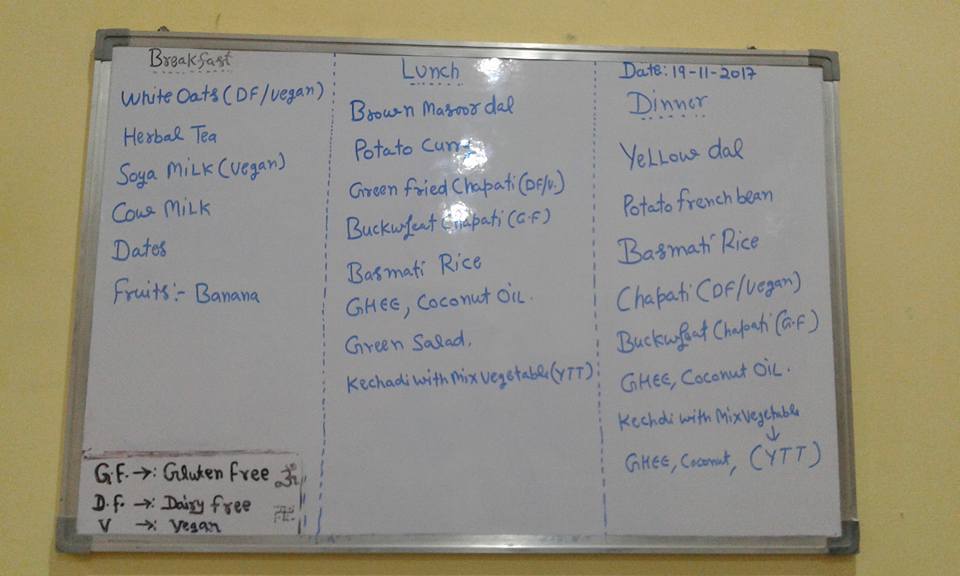 Breakfast
White Oats (DF/Vegan)
Herbal Tea
Soya MiLK (Vegan)
Cow MiLK
Dates
Fruits:- Banana
G.F. →: Gluten free ॐ
D.F. →: Dairy free 卐
V →: Vegan
Lunch
Brown Masoor dal
Potato Curry
Green Fried Chapati (DF/V.)
Buckwfeat Chapati (G.F)
Basmati Rice
GHEE, Coconut OIL.
Green Salad.
Kechadi with Mix Vegetable (YTT)
Date: 19-11-2017
Dinner
Yellow dal
Potato french bean
Basmati Rice
Chapati (DF/Vegan)
Buckwfeat Chapati (G.F)
GHEE, Coconut OIL.
Kechdi with Mix Vegetable
↓
GHEE, Coconut, (YTT)